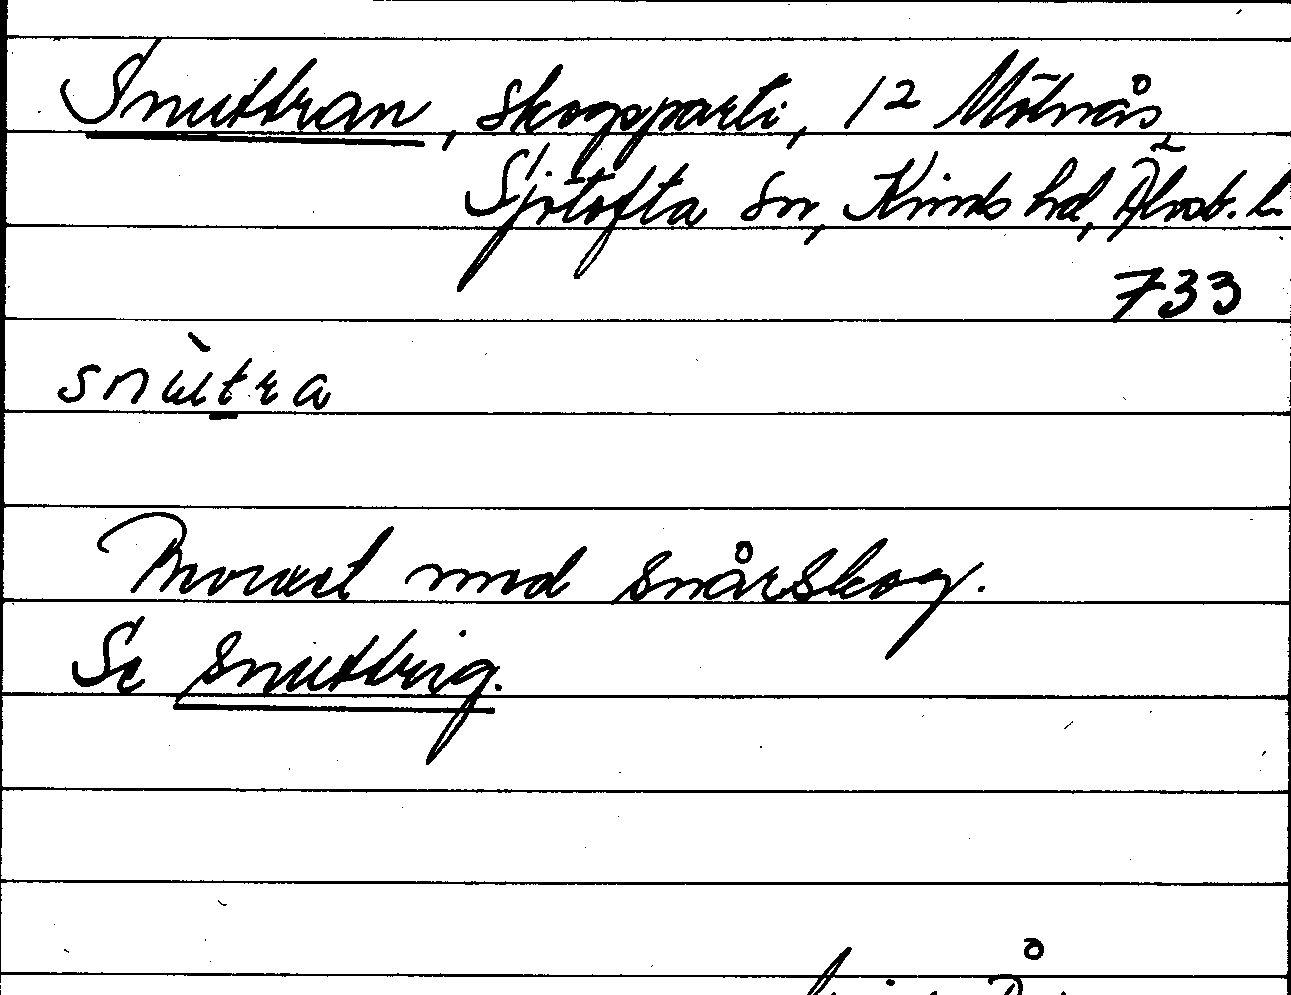 Snuttran, skogsparti, 12 Mölnås,
Sjötofta sn, Kinds hd, Älvsb. l.
733
snùtra
Morast med snårskog.
Se snuttrig.